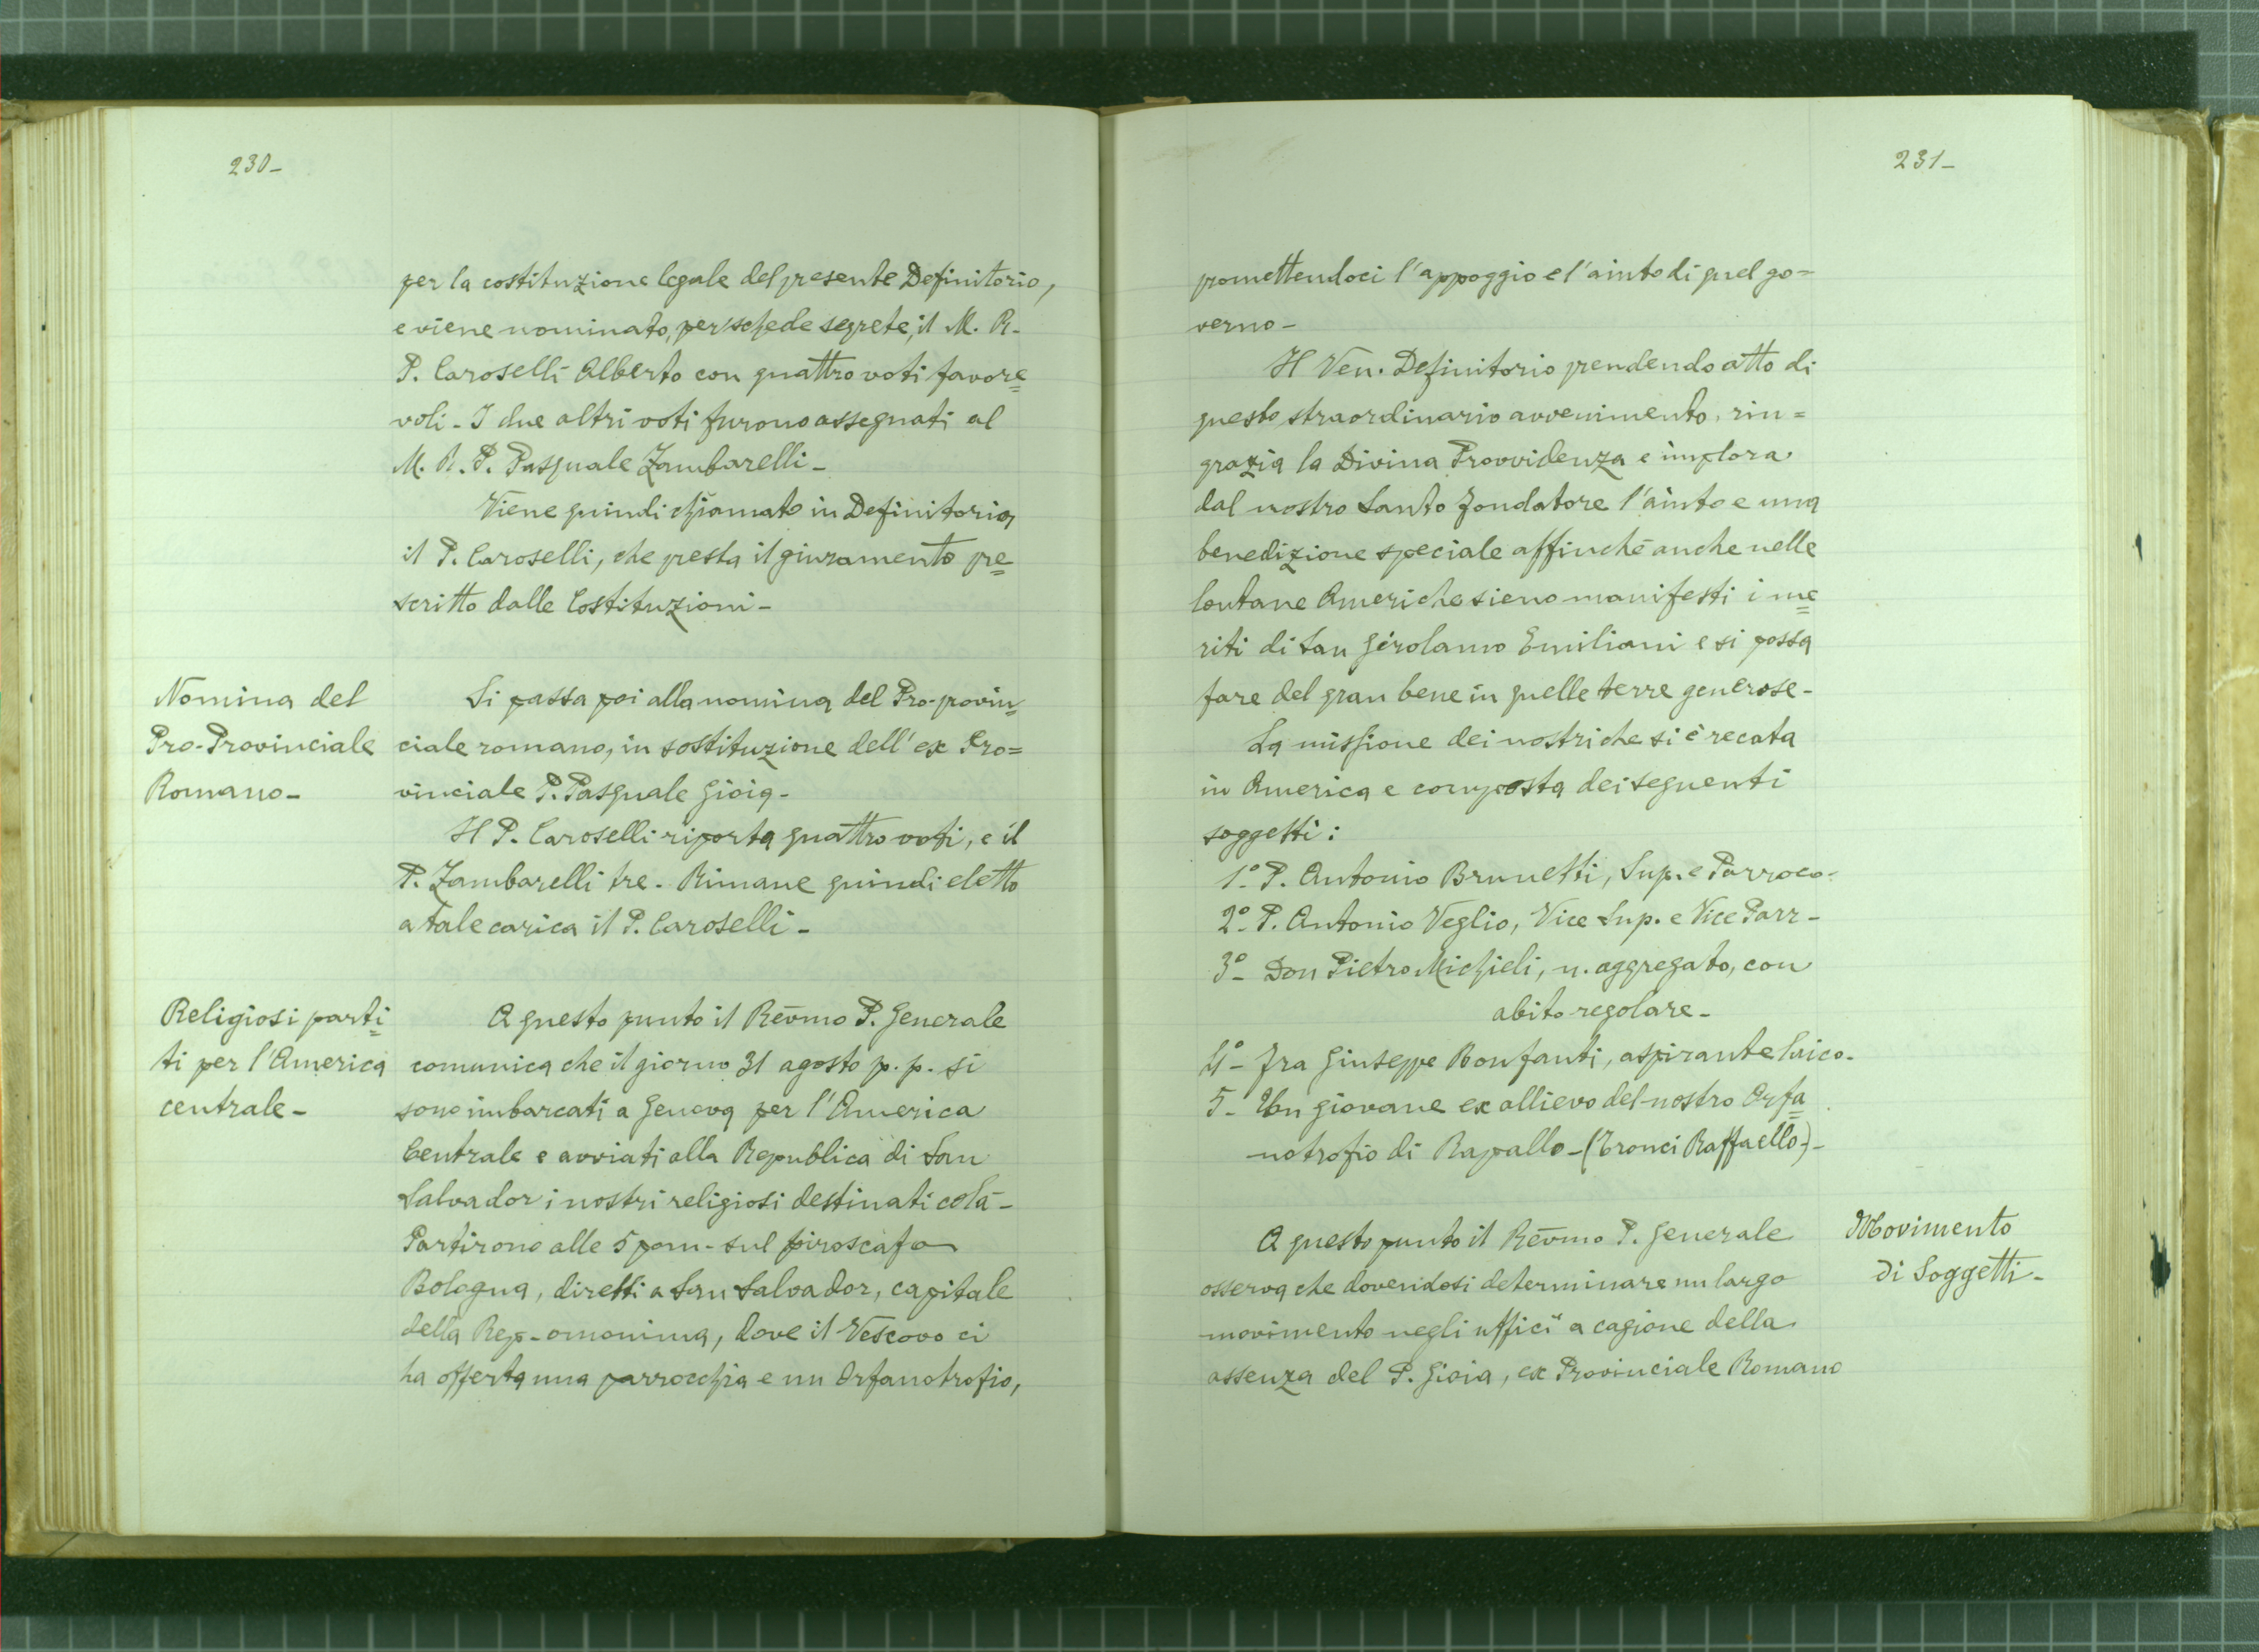 230-
per la costituzione legale del presente Definitorio,
e viene nominato, per schede segrete, il M. R.
P. Caroselli Alberto con quattro voti favore=
voli - I due altri voti furono assegnati al
M. R. P. Pasquale Zambarelli -
Viene quindi chiamato in Definitorio,
il P. Caroselli, che presta il giuramento pre=
scritto dalle Costituzioni -
Nomina del
Pro-Provinciale
Romano -
Si passa poi alla nomina del Pro-provin=
ciale romano, in sostituzione dell'ex Pro=
vinciale P. Pasquale Gioia -
Il P. Caroselli riporta quattro voti, e il
P. Zambarelli tre - Rimane quindi eletto
a tale carica il P. Caroselli -
Religiosi parti=
ti per l'America
centrale -
A questo punto il Rev̄mo P. Generale
comunica che il giorno 31 agosto p. p. si
sono imbarcati a Genova per l'America
Centrale e avviati alla Republica di San
Salvador i nostri religiosi destinati colà -
Partirono alle 5 pom - sul piroscafo
Bologna, diretti a San Salvador, capitale
della Rep - omonima, dove il Vescovo ci
ha offerta una parrocchia e un Orfanotrofio,
231-
promettendoci l'appoggio e l'aiuto di quel go=
verno -
Il Ven. Definitorio prendendo atto di
questo straordinario avvenimento, rin=
grazia la Divina Provvidenza e implora
dal nostro Santo Fondatore l'aiuto e una
benedizione speciale affinchè anche nelle
lontane Americhe sieno manifesti i me=
riti di San Girolamo Emiliani e si possa
fare del gran bene in quelle terre generose -
La missione dei nostri che si è recata
in America e composta dei seguenti
soggetti:
1º- P. Antonio Brunetti, Sup. e Parroco -
2º- P. Antonio Veglio, Vice Sup. e Vice Parr -
3º- Don Pietro Michieli, n. aggregato, con
abito regolare -
4º- Fra Giuseppe Bonfanti, aspirante laico -
5- Un giovane ex allievo del nostro Orfa=
notrofio di Rapallo - (Tronci Raffaello) -
Movimento
di Soggetti -
A questo punto il Rev̄mo P. Generale
osserva che dovendosi determinare un largo
movimento negli ufficî a cagione della
assenza del P. Gioia, ex Provinciale Romano